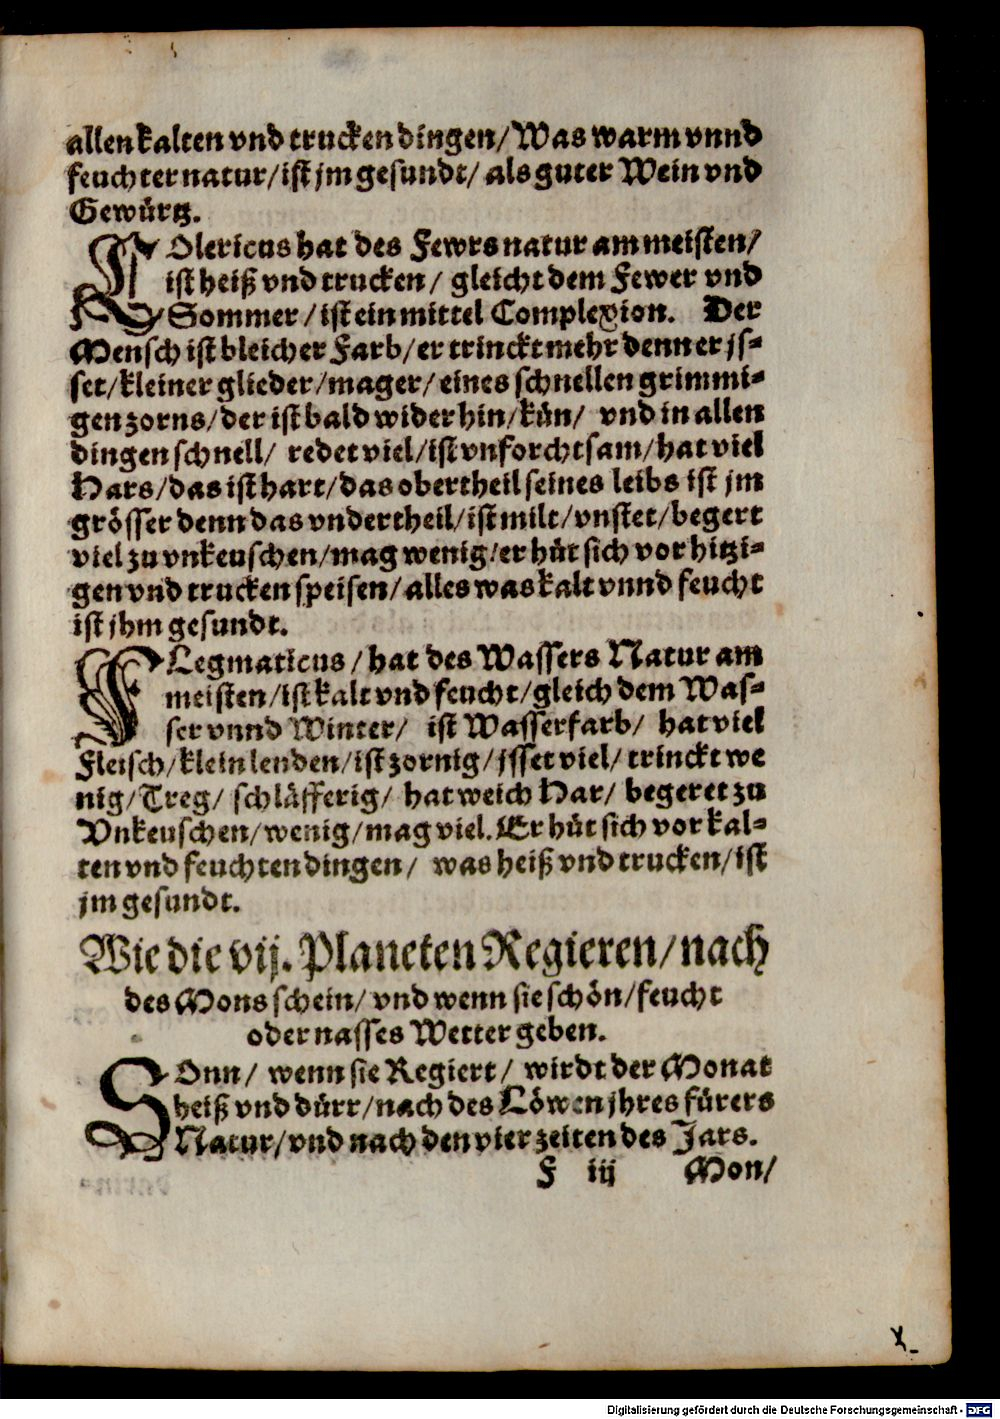 allen kalten vnd trucken dingen/ Was warm vnnd
feuchter natur/ ist jm gesundt/ als guter Wein vnd
Gewürtz.
KOlericus hat des Fewrs natur am meisten/
ist heiß vnd trucken/ gleicht dem Fewer vnd
Sommer/ ist ein mittel Complexion. Der
Mensch ist bleicher Farb/ er trinckt mehr denn er js-
set/ kleiner glieder/ mager/ eines schnellen grimmi-
gen zorns/ der ist bald wider hin/ kün/ vnd in allen
dingen schnell/ redet viel/ ist vnforchtsam/ hat viel
Hars/ das ist hart/ das obertheil seines leibs ist jm
grösser denn das vndertheil/ ist milt/ vnstet/ begert
viel zu vnkeuschen/ mag wenig/ er hüt sich vor hitzi-
gen vnd trucken speisen/ alles was kalt vnnd feucht
ist jhm gesundt.
FLegmaticus/ hat des Wassers Natur am
meisten/ ist kalt vnd feucht/ gleich dem Was-
ser vnnd Winter/ ist Wasserfarb/ hat viel
Fleisch/ klein lenden/ ist zornig/ jsset viel/ trinckt we
nig/ Treg/ schläfferig/ hat weich Har/ begeret zu
Vnkeuschen/ wenig/ mag viel. Er hüt sich vor kal-
ten vnd feuchten dingen/ was heiß vnd trucken/ ist
jm gesundt.
Wie die vij. Planeten Regieren/ nach
des Mons schein/ vnd wenn sie schön/ feucht
oder nasses Wetter geben.
SOnn/ wenn sie Regiert/ wirdt der Monat
heiß vnd dürr/ nach des Löwen jhres fürers
Natur/ vnd nach den vier zeiten des Jars.
F iij Mon/
Digitalisierung gefördert durch die Deutsche Forschungsgemeinschaft - DFG